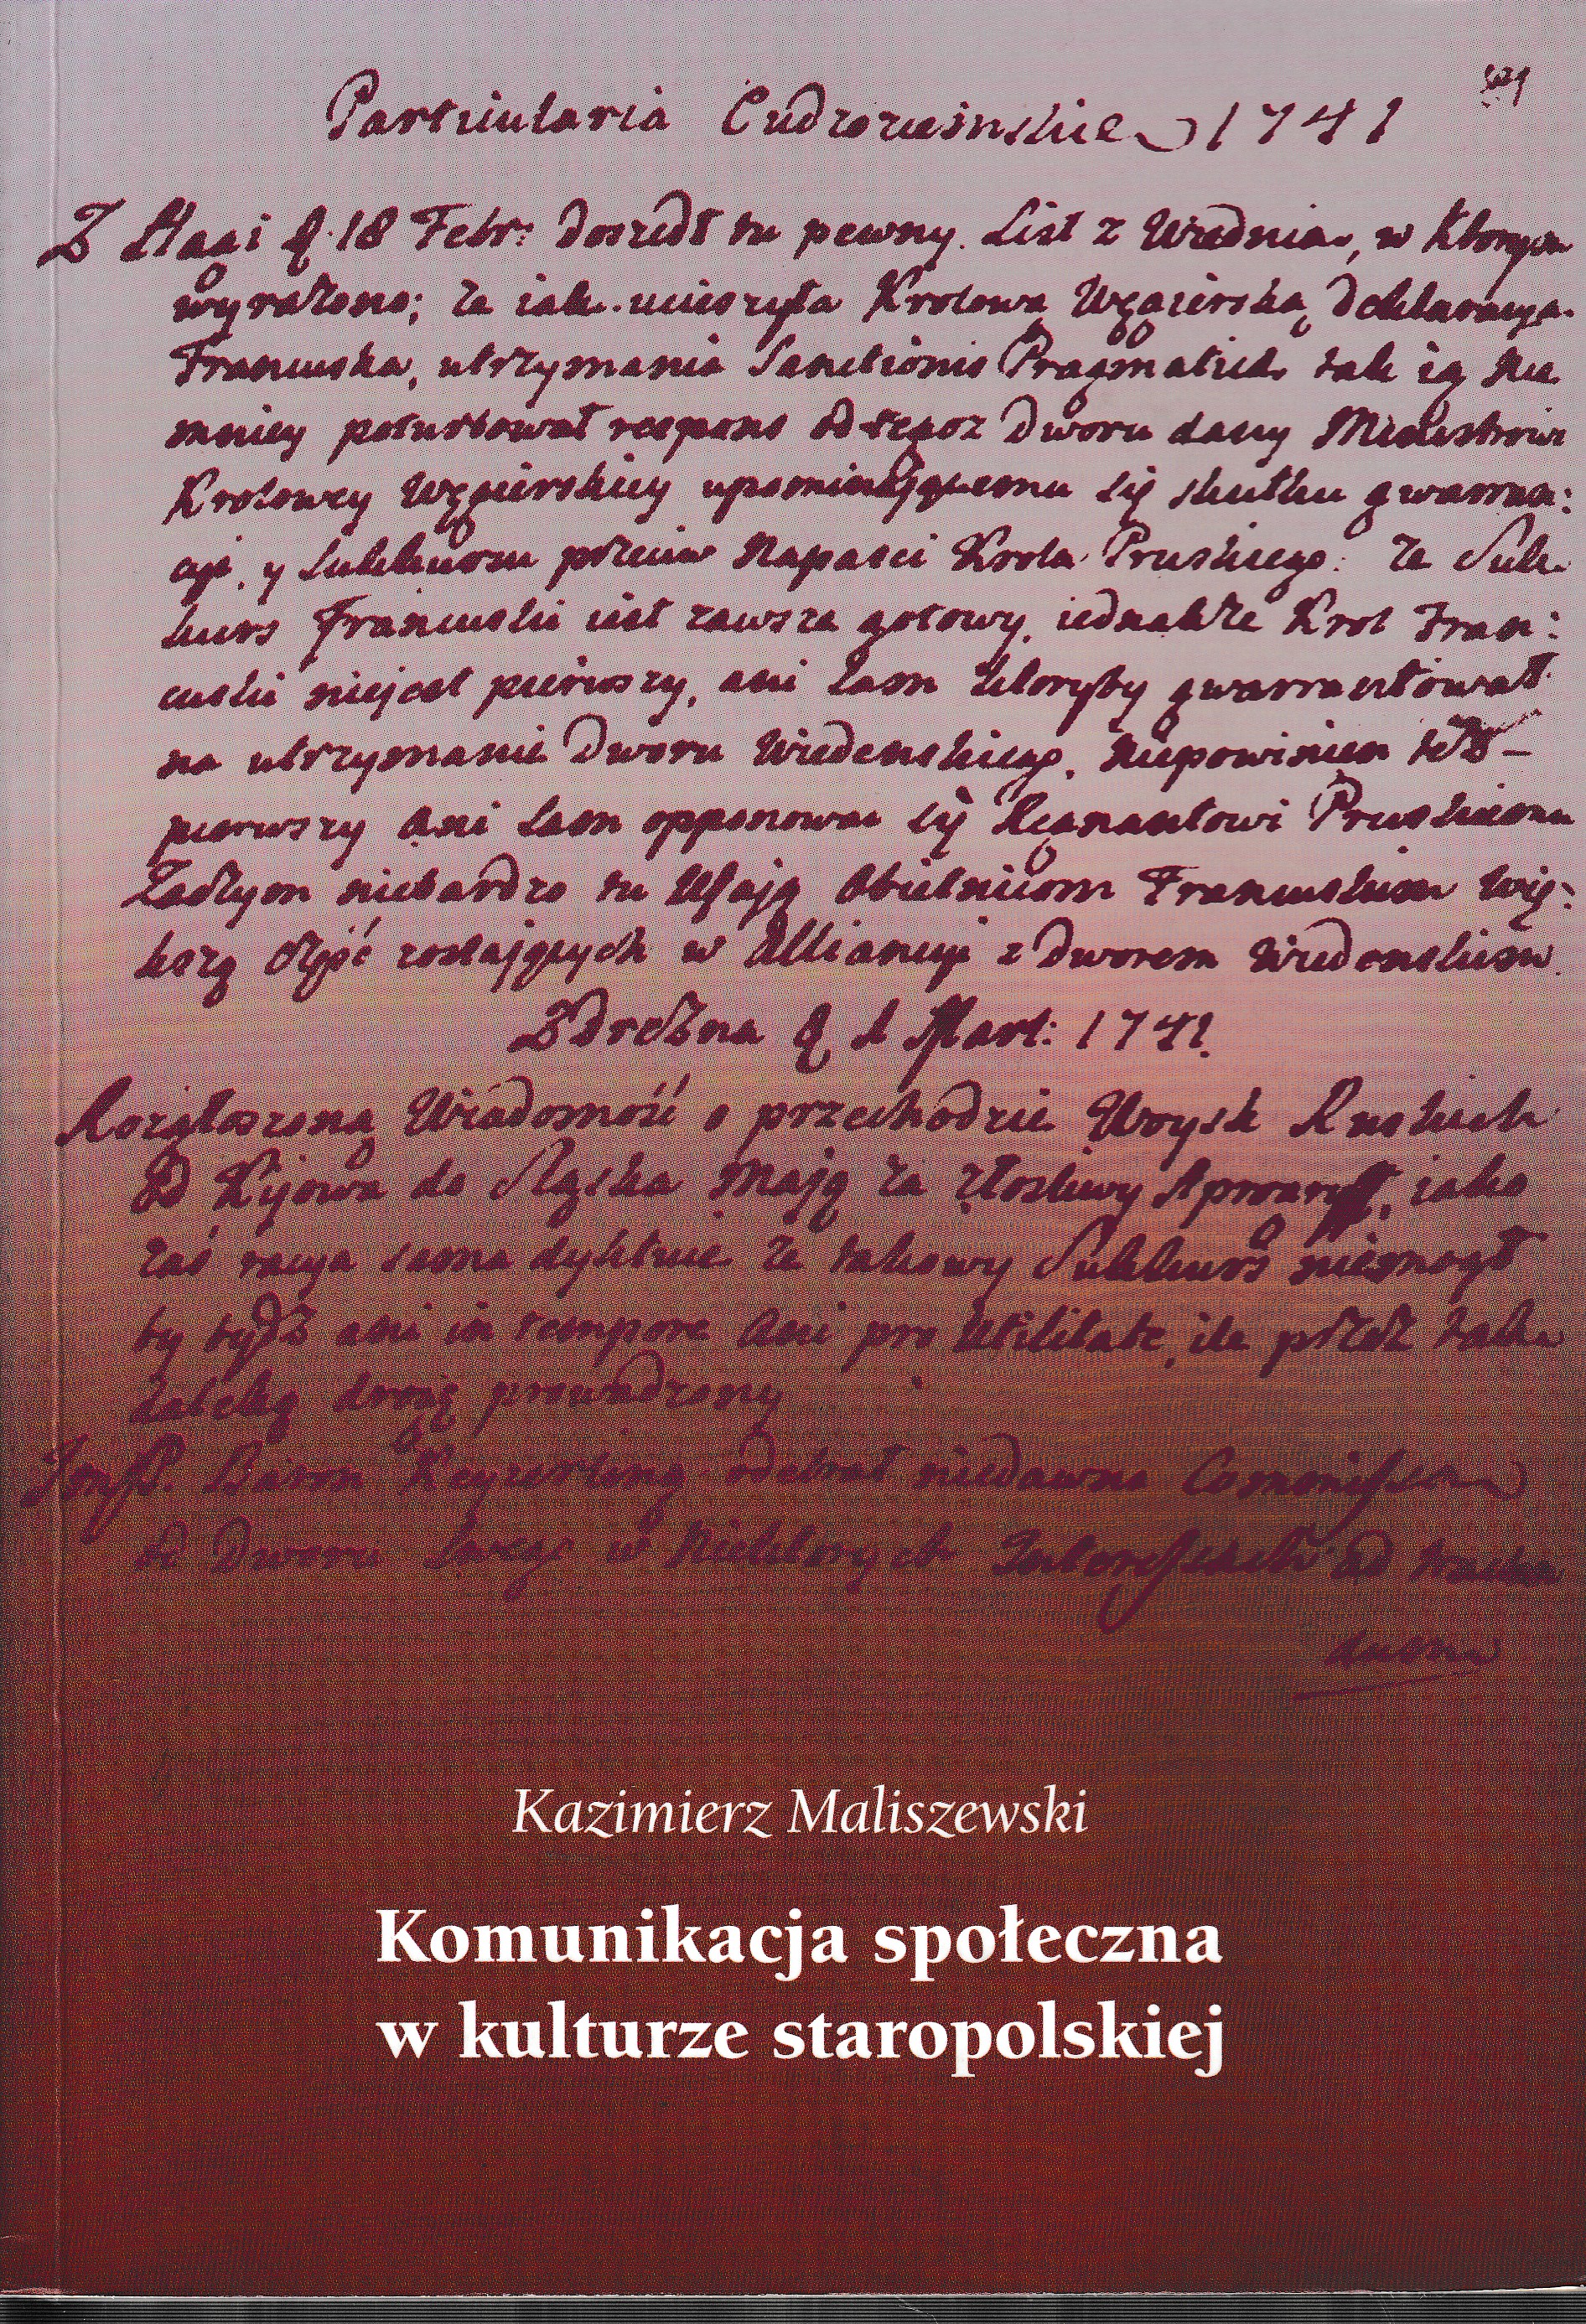 Particularia Cudzoziemskie 1741
Z Haai d. 18 Febr: doszedł tu pewny List z Wiednia, w ktorym
wyrażono; że iak ucieszyła Krolową Węgierską deklaracya
Francuska, utrzymania Sanctionis Pragmaticae tak ią nie
mniey poturbował respons od tegoz Dworu dany Ministrowi
Krolowey Węgierskiey upominaiącemu się skutku gwaran:
cyi, y Sukkursu przeciw Napasci Krola Pruskiego: że Suk
kurs Francuski iest zawsze gotowy, iednakże Krol Fran:
cuski niejest pierwszy, ani sam ktoryby gwarrantował
na utrzymanie Dworu Wiedenskiego, niepowinien też
pierwszy ani sam opponowac się Regnantowi Pruskiemu
Zadtym niebardzo tu Ufają Obietnicom Francuskim Wię:
kszą część zostających w Alliancyi z Dworem Wiedenskim.
Z Drezna d. 1 Mart: 1741.
Rozgłoszoną Wiadomość o przechodzie Woysk Ruskich
od Kijowa do Sląska mają za złosliwy, iako
zaś racya sama dyktuie że takowy Sukkurs niemogł
by bydź ani in tempore ani pro Utilitate, ile przez tak
daleką drogę prowadzony
Jmsć P. Baron Keyzerling odebrał niedawno
od Dworu Swego w niektorych Interessach ad
Kazimierz Maliszewski
Komunikacja społeczna
w kulturze staropolskiej